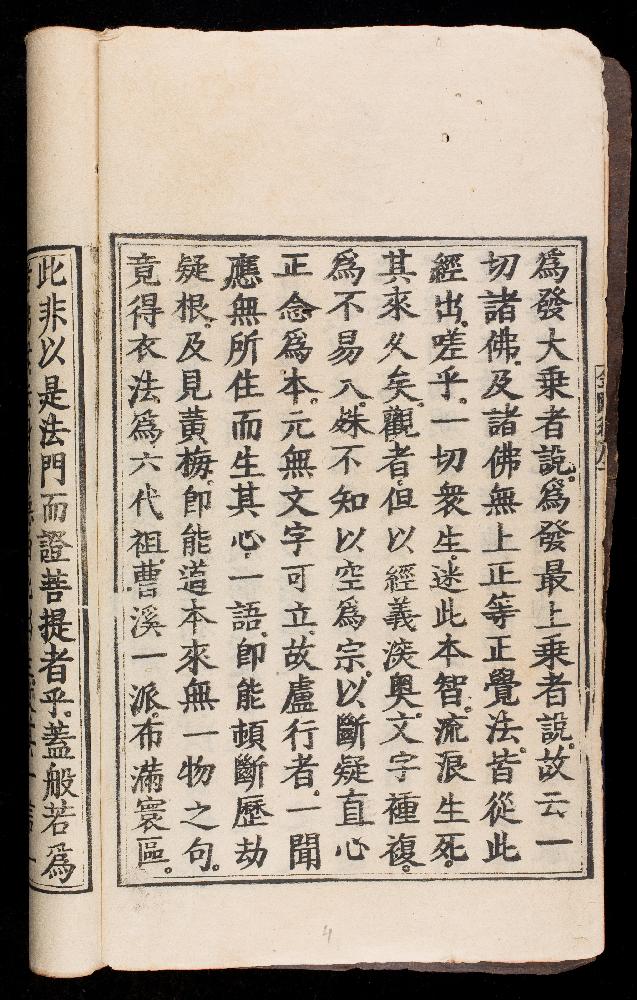 為發大乗者說。為發最上乗者說。故云一
切諸佛。及諸佛無上正等正覺法。皆從此
經出。嗟乎。一切衆生。迷此本智。流浪生死。
其來久矣。觀者。但以經義淡奥。文字種複。
為不易入。姝不知以空為宗。以斷疑直心
正念為本。元無文字可立。故盧行者。一聞
應無所住而生其心。一語。卽能頓斷歷劫
疑根。及見黃梅。卽能道本來無一物之句。
竟得衣法為六代祖。曹溪一派。布滿寰區。
此非以是法門而證菩提者乎。蓋般若為
4